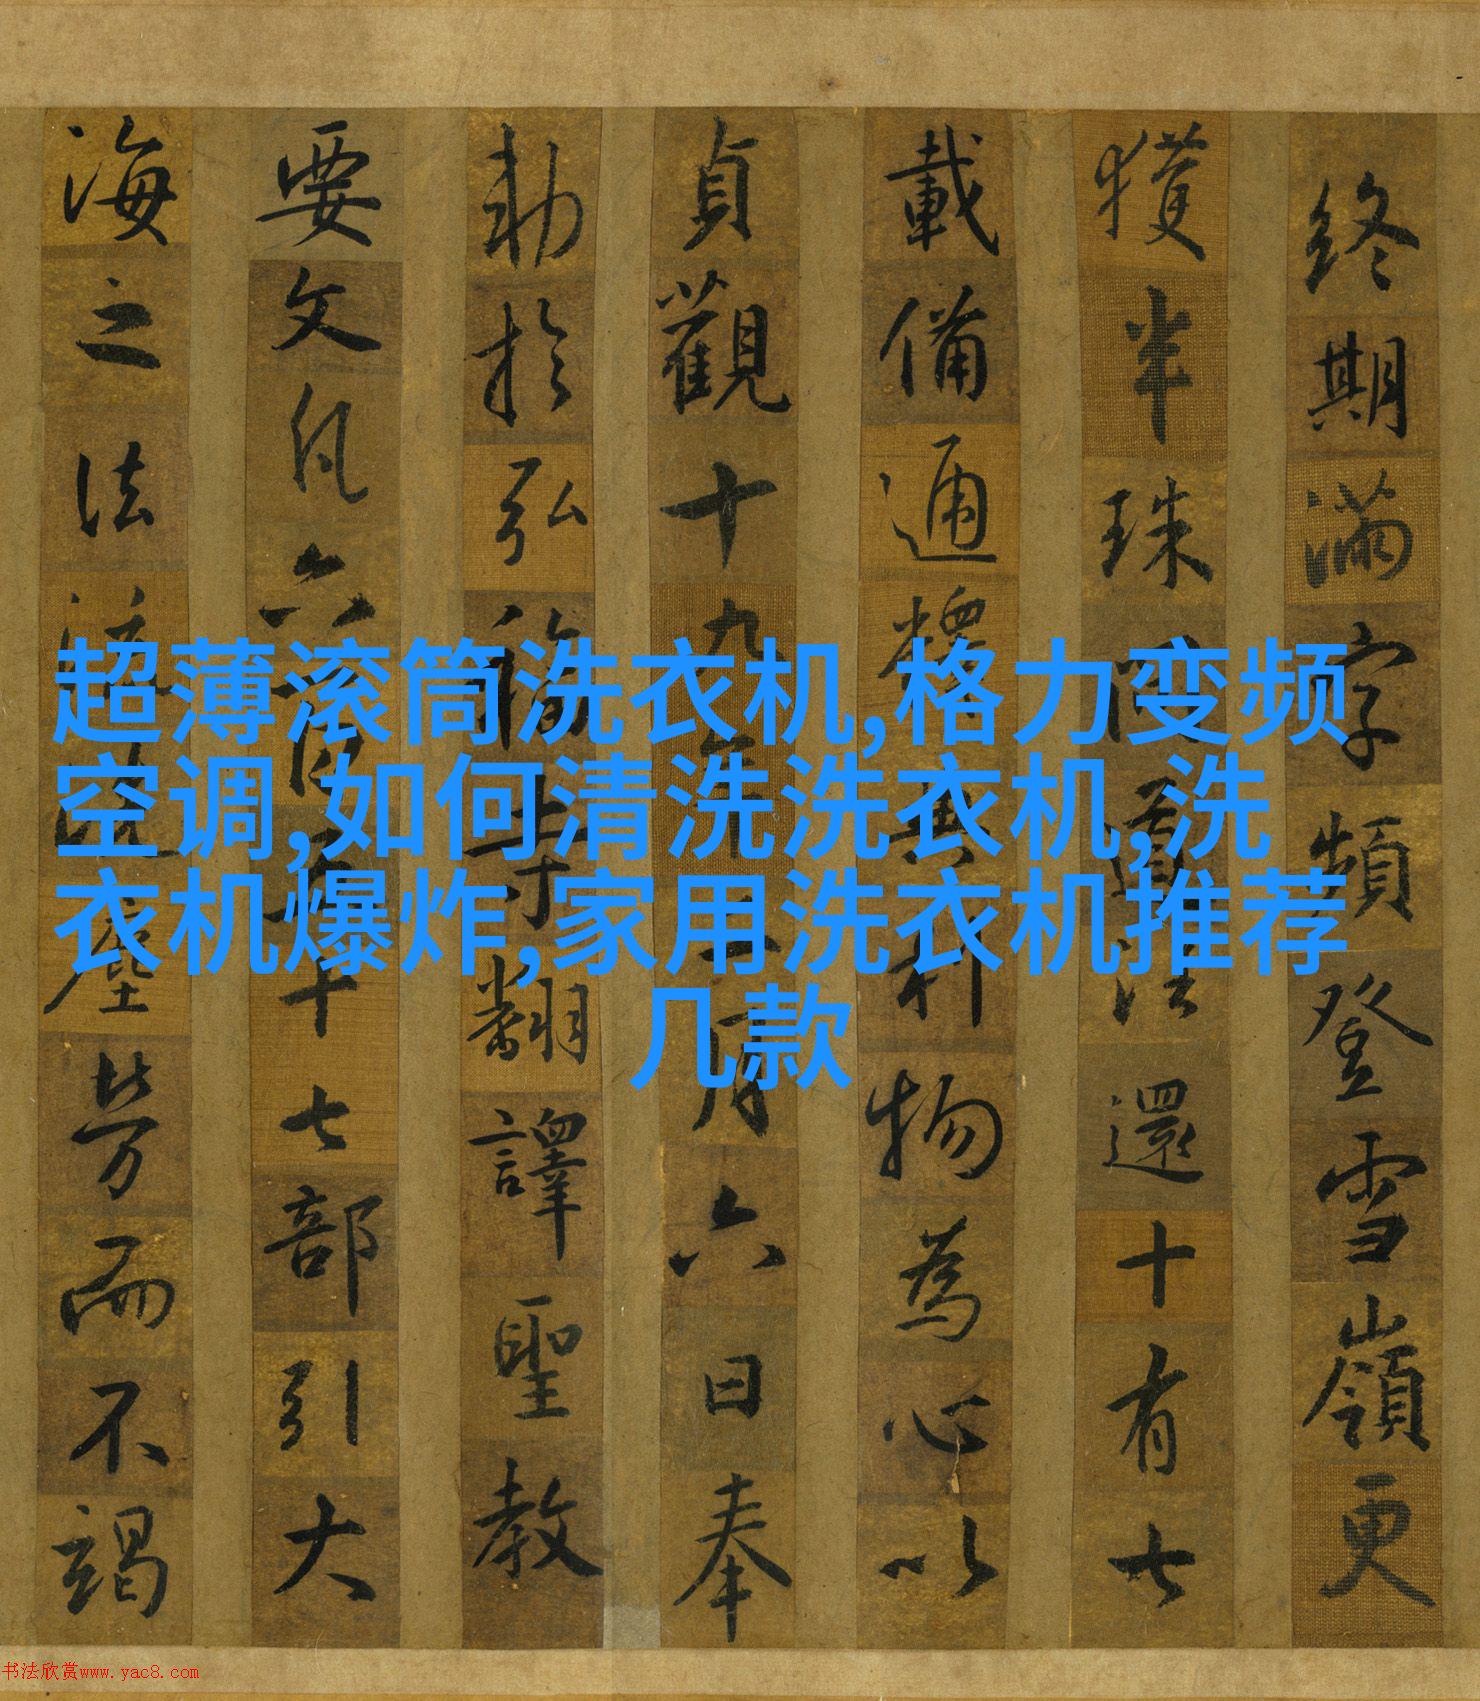 終期滿字頻登雪嶺更
獲半珠問道法還十有七
載備通釋典利物為心以
貞觀十九年二月六日奉
勅於弘福寺翻譯聖教
要文凡六百五十七部引大
海之法流洗塵勞而不竭
超薄滚筒洗衣机,格力变频
空调,如何清洗洗衣机,洗
衣机爆炸,家用洗衣机推荐
几款
书法欣赏www.yac8.com